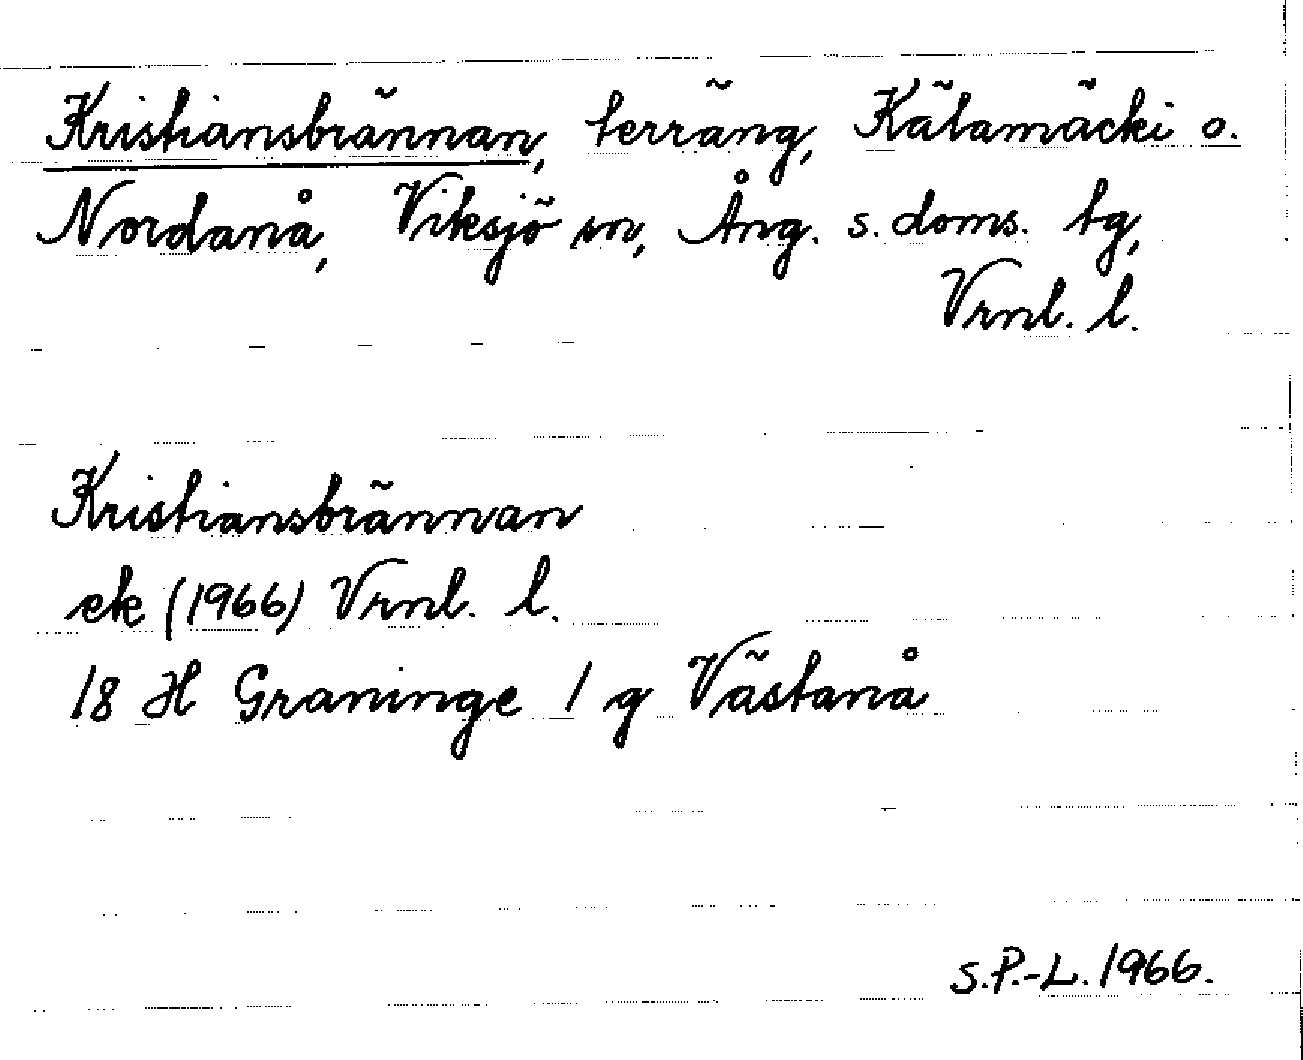 Kristiansbrännan, terräng, Kälamäcki o.
Nordanå, Viksjö sn, Ång. s. doms. tg,
Vrnl. l.
Kristiansbrännan
ek (1966) Vrnl. l.
18 H Graninge 1 g Västanå
S.P.-L. 1966.